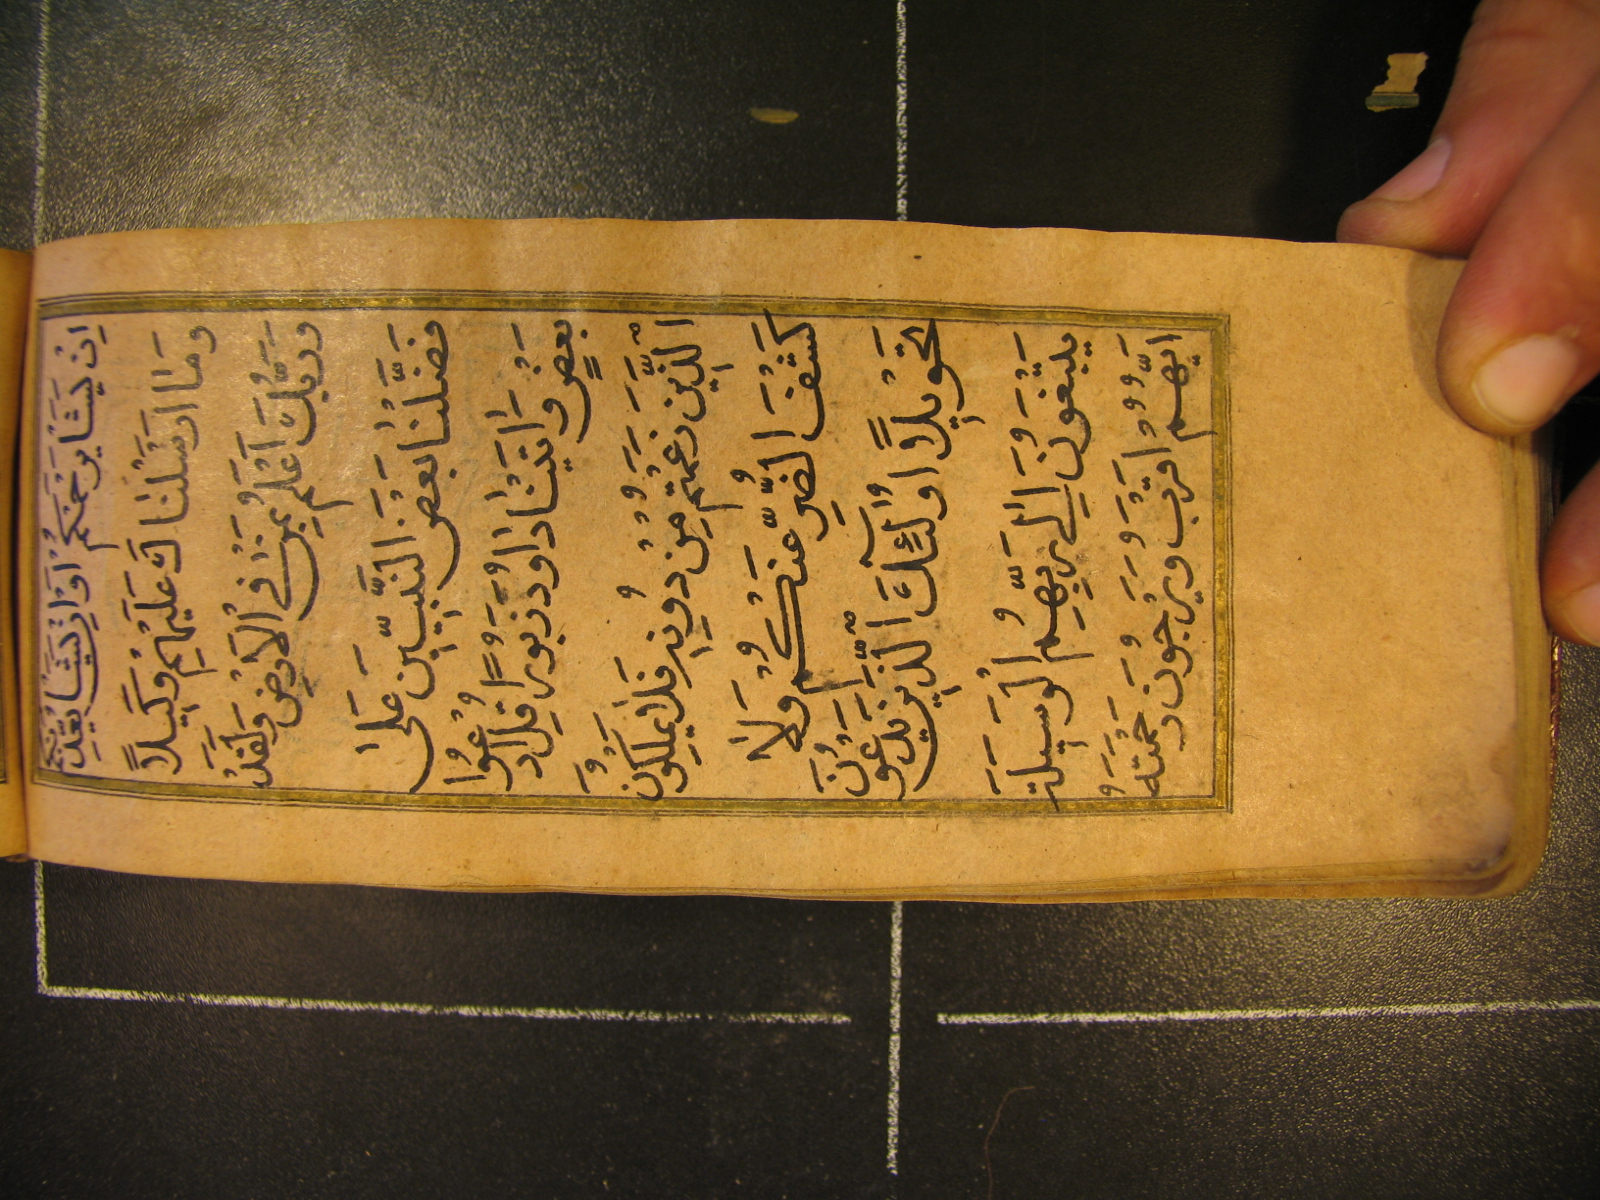 اِنْ يَشَاْ يَرْحَمْكُمْ اَوْ اِنْ يَشَاْ يُعَذِّبْكُمْ
وَمَا اَرْسَلْنَاكَ عَلَيْهِمْ وَكِيلًا
وَرَبُّكَ اَعْلَمُ بِمَنْ فِى الْاَرْضِ وَلَقَدْ
فَضَّلْنَا بَعْضَ النَّبِيّٖنَ عَلٰى
بَعْضٍ وَاٰتَيْنَا دَاوُدَ زَبُورًا قُلِ ادْعُوا
الَّذِينَ زَعَمْتُمْ مِنْ دُونِهِ فَلَا يَمْلِكُونَ
كَشْفَ الضُّرِّ عَنْكُمْ وَلَا
تَحْوِيلًا اُولٰٓئِكَ الَّذِينَ يَدْعُونَ
يَبْتَغُونَ اِلٰى رَبِّهِمُ الْوَسِيلَةَ
اَيُّهُمْ اَقْرَبُ وَيَرْجُونَ رَحْمَتَهُ